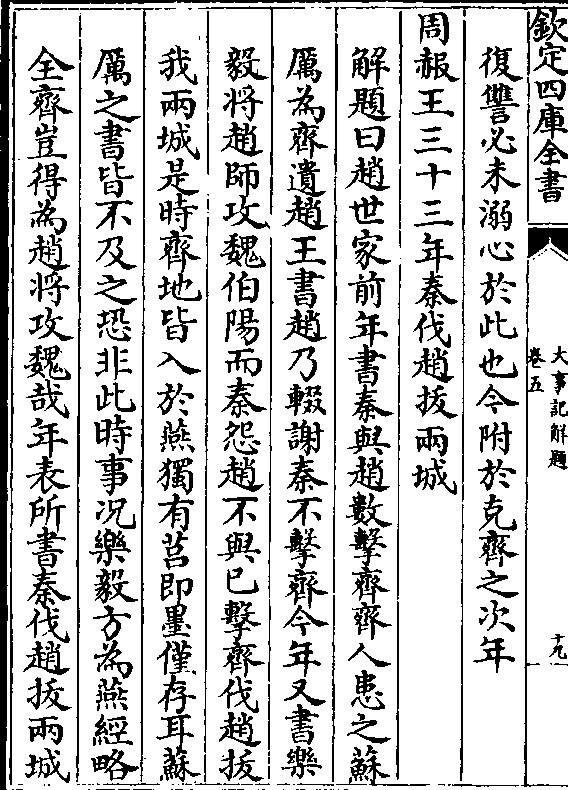 欽定四庫全書
大事記解題
卷五
十九
復讐必未溺心於此也今附於克齊之次年
周赧王三十三年秦伐趙拔兩城
解題曰趙世家前年書秦與趙數擊齊齊人患之蘇
厲為齊遺趙王書趙乃輟謝秦不擊齊今年又書樂
毅將趙師攻魏伯陽而秦怨趙不與已擊齊伐趙拔
我兩城是時齊地皆入於燕獨有莒即墨僅存耳蘇
厲之書皆不及之恐非此時事况樂毅方為燕經略
全齊豈得為趙將攻魏哉年表所書秦伐趙拔兩城